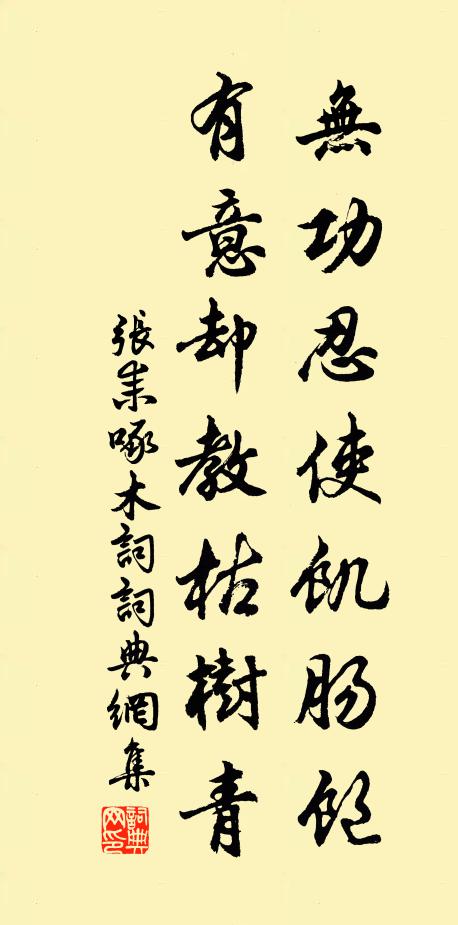 無功忍使飢腸飽
有意却教枯樹青
張耒啄木詞詞典網集
詞典網印